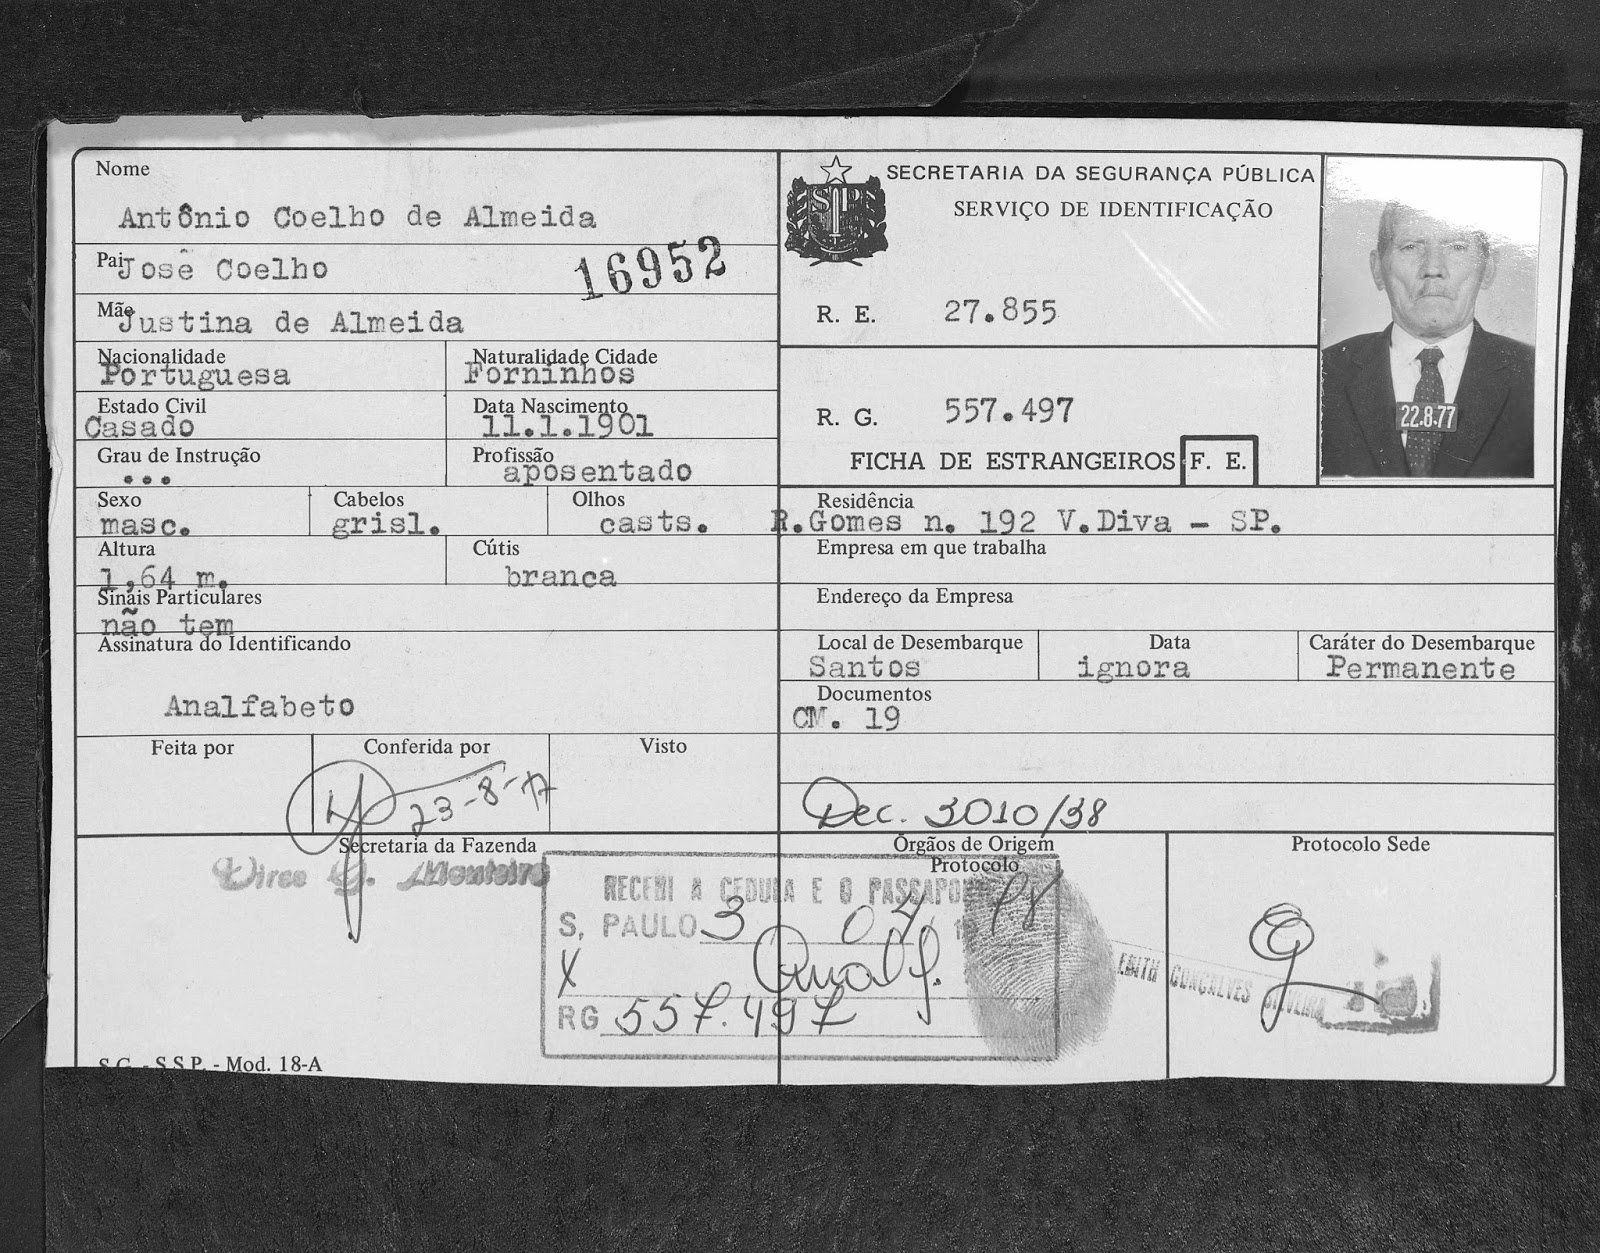 Nome
Antônio Coelho de Almeida
Pai José Coelho
16952
Mãe Justina de Almeida
Nacionalidade
Portuguesa
Naturalidade Cidade
Forninhos
Estado Civil
Casado
Data Nascimento
11.1.1901
Grau de Instrução
...
Profissão
aposentado
Sexo
masc.
Cabelos
grisl.
Olhos
casts.
Altura
1,64 m.
Cútis
branca
Sinais Particulares
não tem
Assinatura do Identificando
Analfabeto
Feita por
Conferida por
23-8-77
Visto
SECRETARIA DA SEGURANÇA PÚBLICA
SERVIÇO DE IDENTIFICAÇÃO
SP
R. E. 27.855
R. G. 557.497
FICHA DE ESTRANGEIROS F. E.
22.8.77
Residência
R.Gomes n. 192 V.Diva - SP.
Empresa em que trabalha
Endereço da Empresa
Local de Desembarque
Santos
Data
ignora
Caráter do Desembarque
Permanente
Documentos
CM. 19
Dec. 3010/38
Secretaria da Fazenda
Órgãos de Origem
Protocolo
Protocolo Sede
Monteiro
RECEBI A CEDULA E O
S. PAULO 3 04 78
X Analf.
RG 557.497
EDITH GONÇALVES SILVEIRA
S.G. - S.S.P. - Mod. 18-A